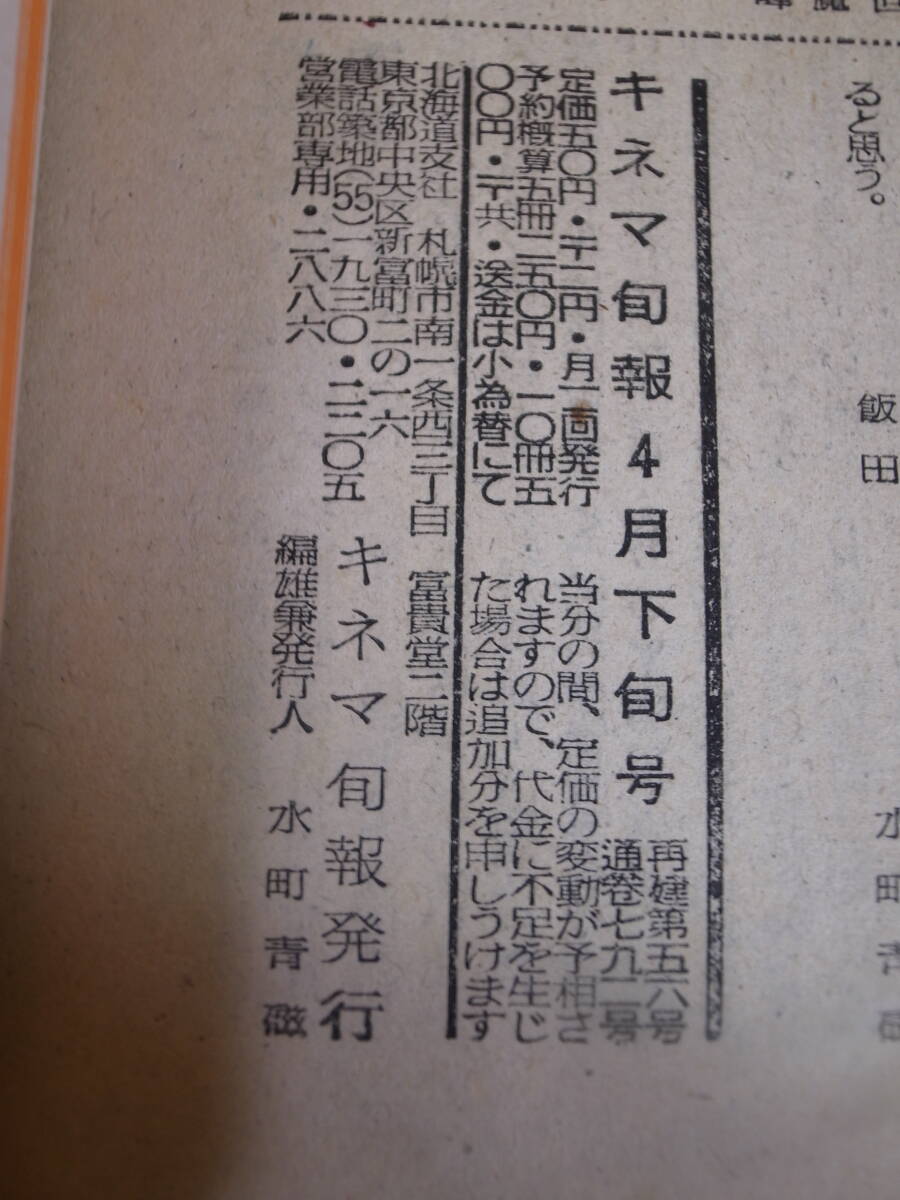 ると思う。
飯田
水町青磁
キネマ旬報4月下旬号
再建第五六号
通巻七九二号
定価五〇円・〒二円・月一回発行
予約概算五冊二五〇円・一〇冊五
〇〇円・〒共・送金は小為替にて
当分の間、定価の変動が予相さ
れますので、代金に不足を生じ
た場合は追加分を申しうけます
北海道支社 札幌市南一条西三丁目 富貴堂二階
東京都中央区新富町二の一六
電話築地(55)一九三〇・二二〇五
キネマ旬報発行
営業部専用・二八八六
編雄兼発行人 水町青磁